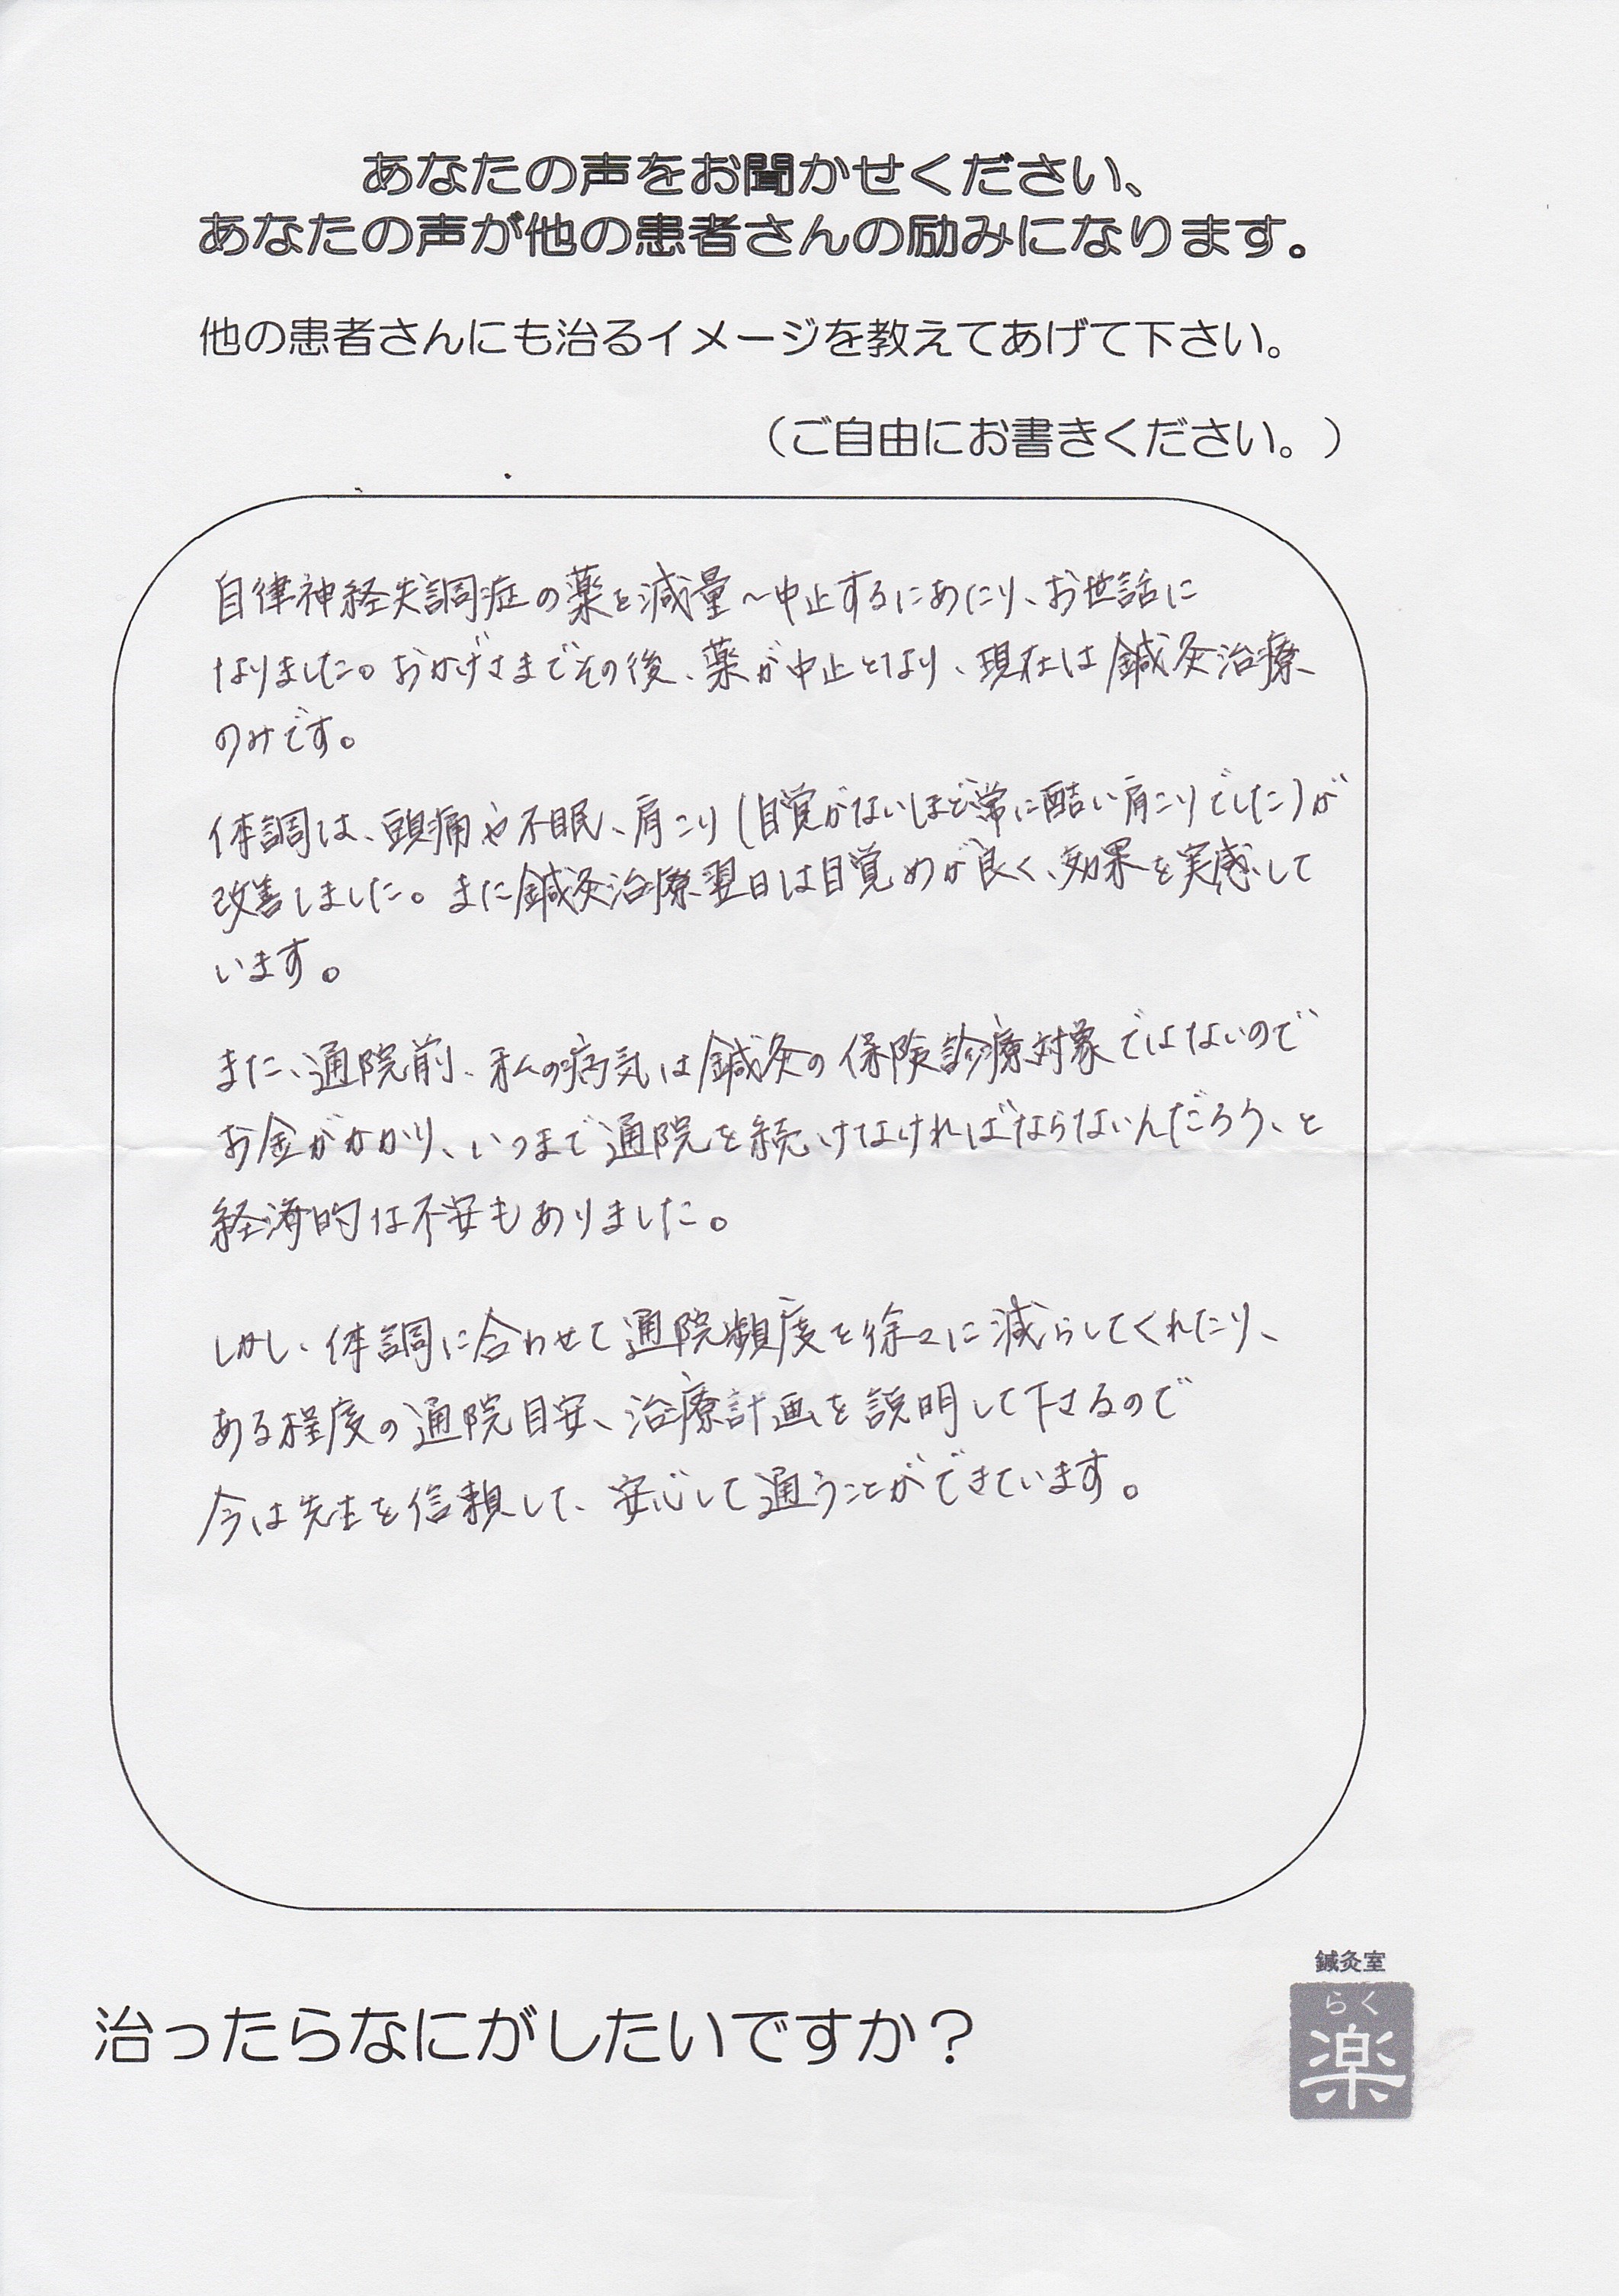 あなたの声をお聞かせください、
あなたの声が他の患者さんの励みになります。
他の患者さんにも治るイメージを教えてあげて下さい。
（ご自由にお書きください。）
自律神経失調症の薬を減量～中止するにあたり、お世話に
なりました。おかげさまでその後、薬が中止となり、現在は鍼灸治療
のみです。
体調は、頭痛や不眠、肩こり（自覚がないほど常に酷い肩こりでした）が
改善しました。また鍼灸治療翌日は目覚めが良く、効果を実感して
います。
また、通院前、私の病気は鍼灸の保険診療対象ではないので
お金がかかり、いつまで通院を続けなければならないんだろう、と
経済的は不安もありました。
しかし、体調に合わせて通院頻度を徐々に減らしてくれたり、
ある程度の通院目安、治療計画を説明して下さるので
今は先生を信頼して、安心して通うことができています。
治ったらなにがしたいですか？
鍼灸室
らく
楽